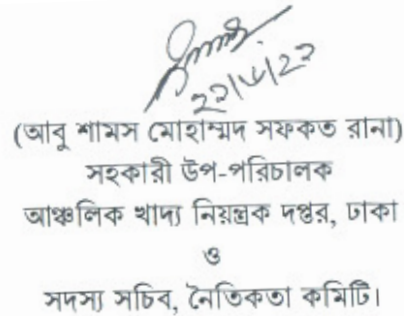 ২২/৬/২২
(আবু শামস মোহাম্মদ সফকত রানা)
সহকারী উপ-পরিচালক
আঞ্চলিক খাদ্য নিয়ন্ত্রক দপ্তর, ঢাকা
ও
সদস্য সচিব, নৈতিকতা কমিটি।